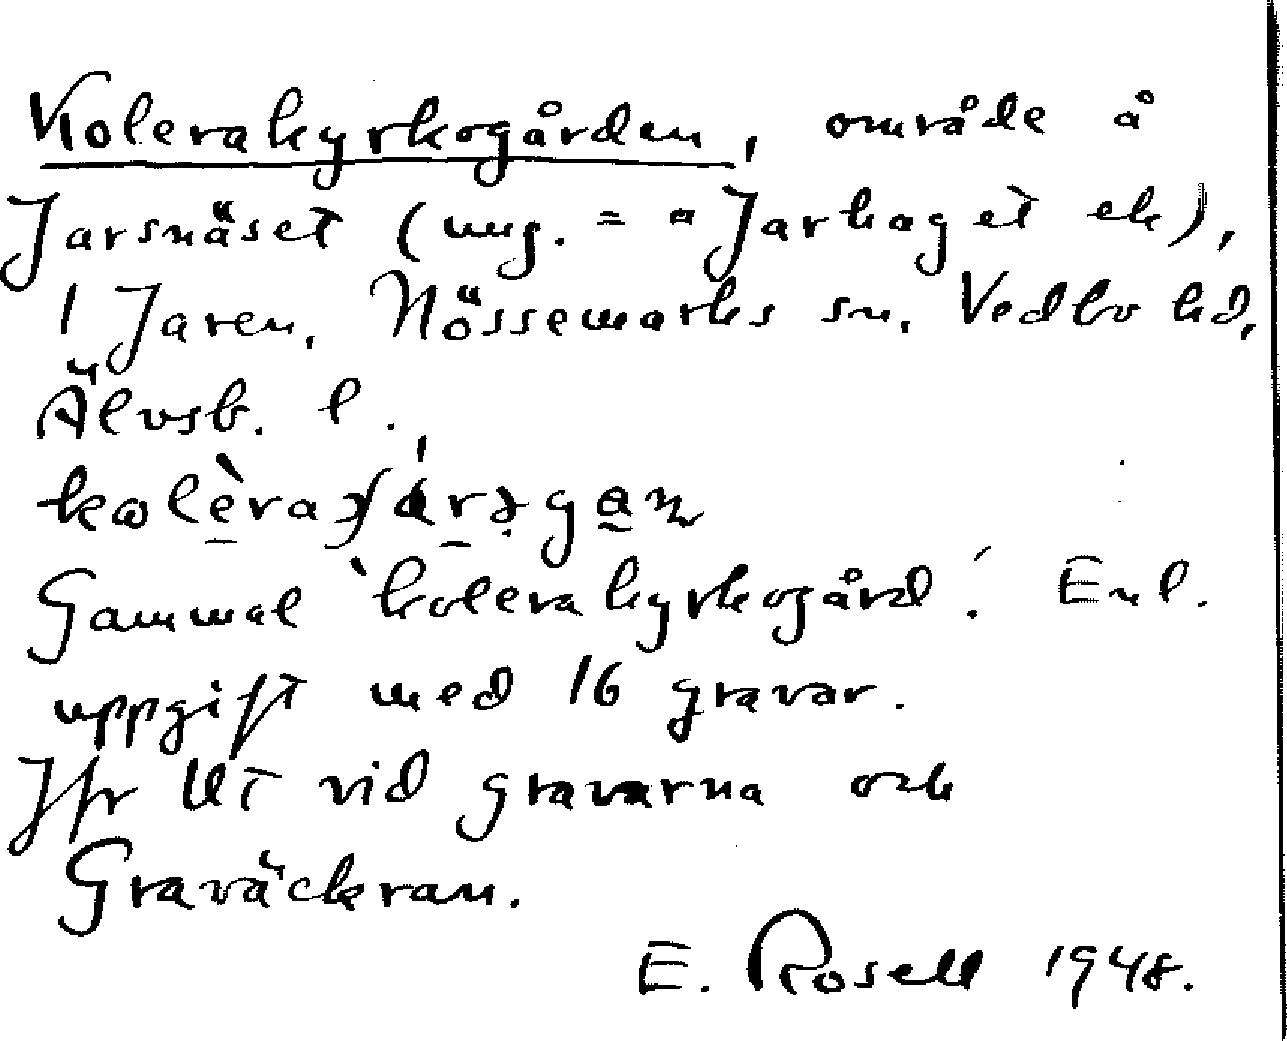 Kolerakyrkogården, område å
Jarsnäset (ung. = ¤ Jarkaget ek),
1 Jaren, Nössemarks sn, Vedbo hd,
Älvsb. l.
Gammal 'kolerakyrkogård'. Enl.
uppgift med 16 gravar.
Jfr Ut vid gravarna och
Graväckran.
E. Rosell 1948.